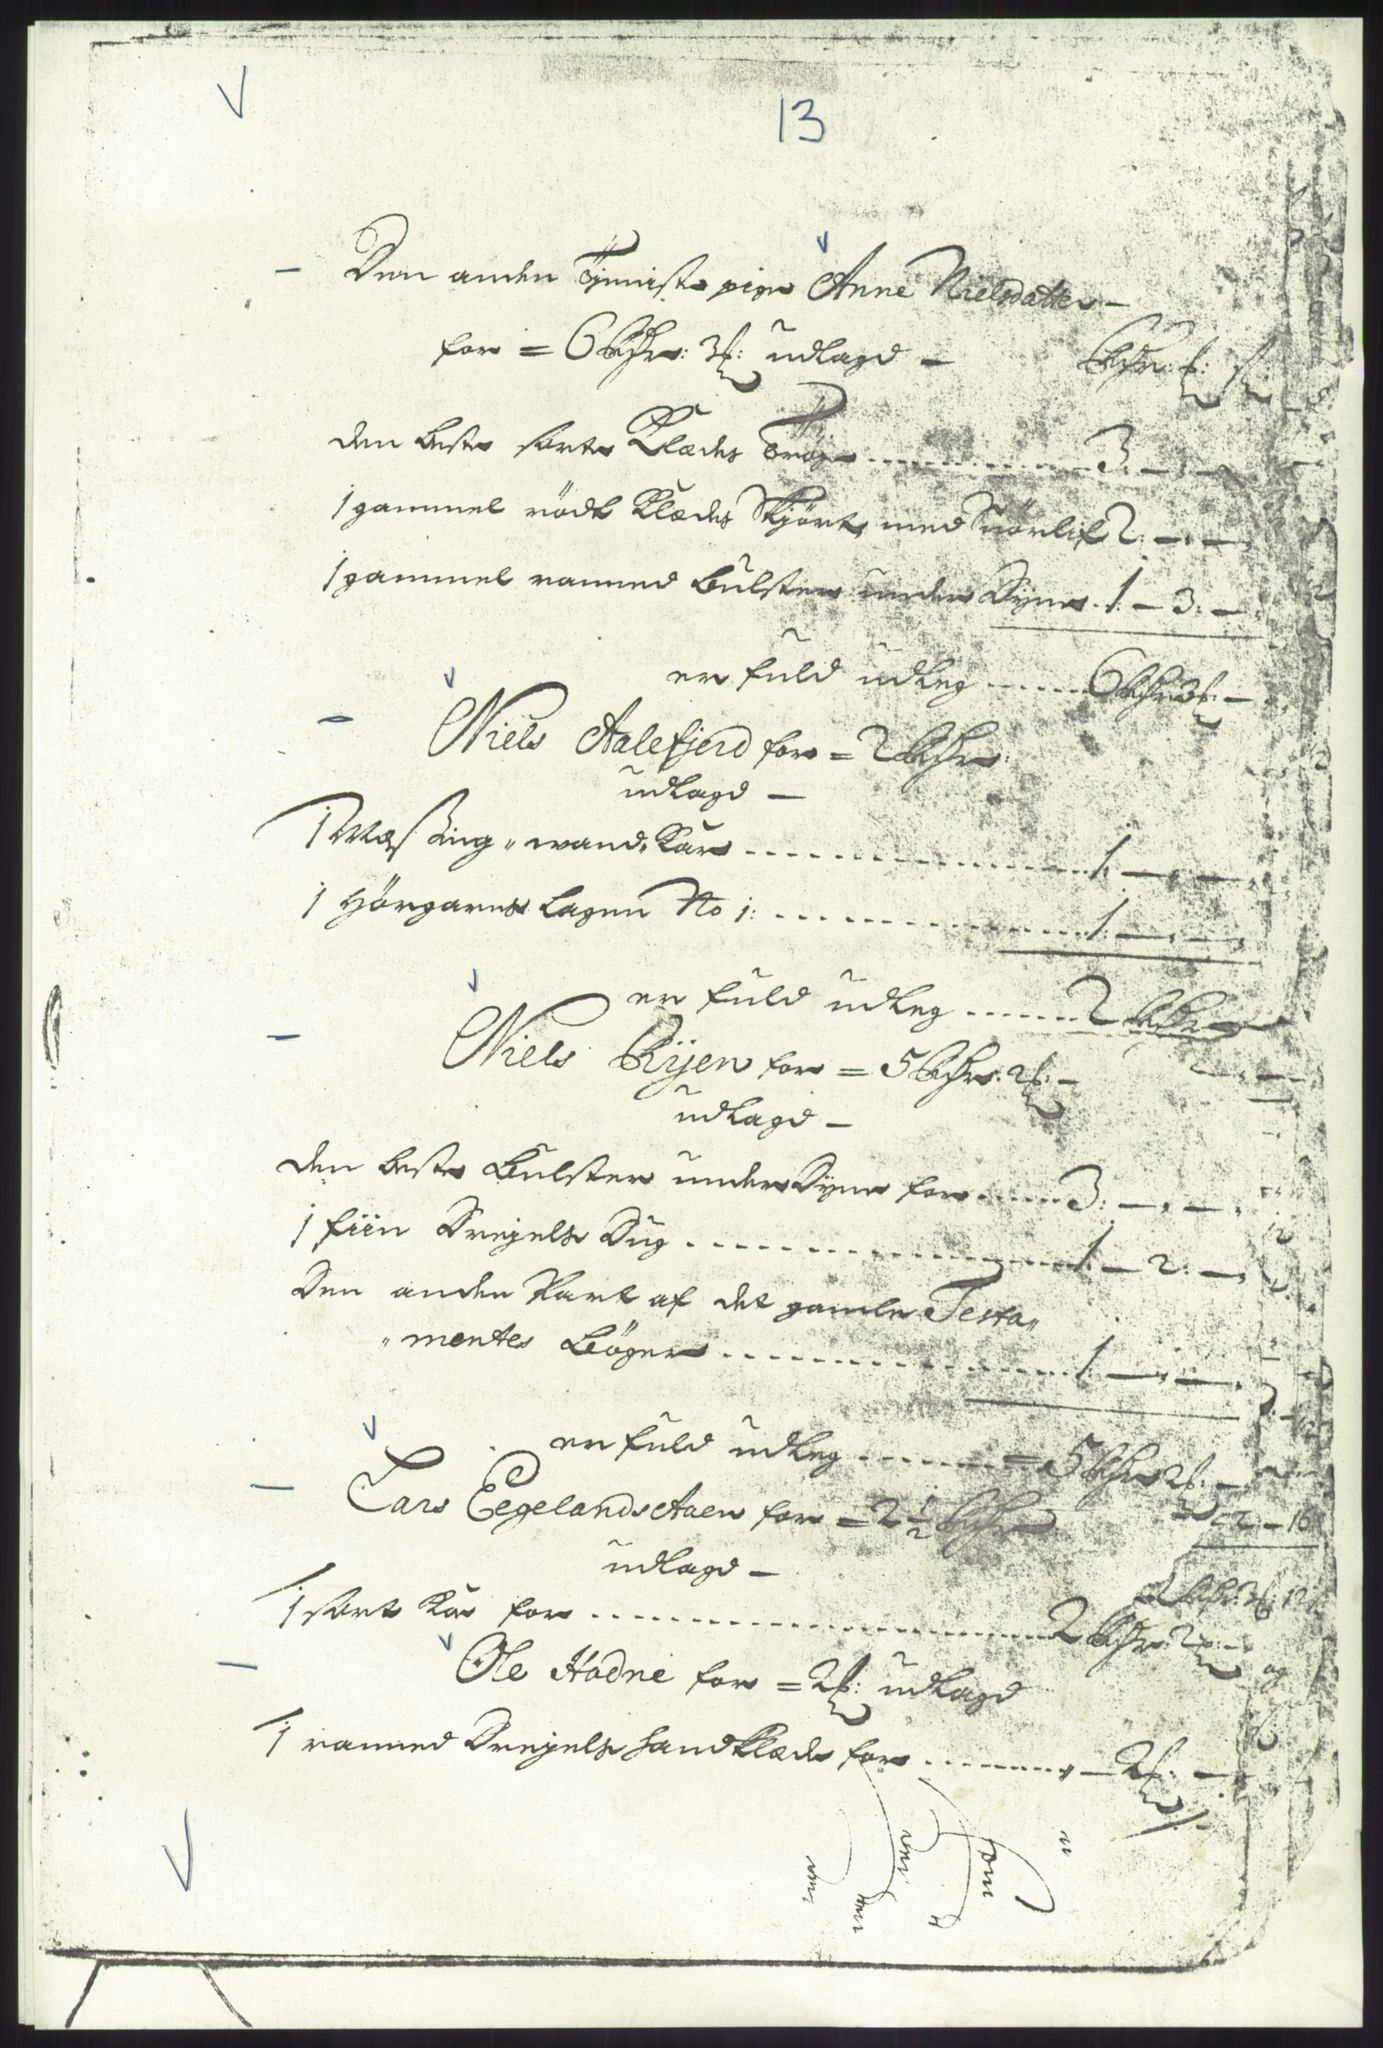 13
Den anden Tjeniste pige Anne Nielsdatter –
for = 6 Rdr: 3 ß: udlagd – Rdr: ß: s
den beste sorte Klædes Trøye ........ 3: – , –
1 gammel rödt Klædes Skjört med Snörlif 2: – , –
1 gammel ranned Bulster under Dyne . 1: – 3: –
er fuld udleg ...... 6 Rdr 3 ß: –
Niels Aalefjerd for = 2 Rdr:
udlagd –
1 Messing " wand " Kar .......... 1: – , – ,
1 Hörgarns Lagen No 1: .......... 1: – , – ,
er fuld udleg ....... 2 Rdr
Niels Ryen for = 5 Rdr: 2 ß: –
udlagd –
den beste Bulster under Dyne for ..... 3: – , – ,
1 fiin Dreyels Dug .......... 1: – 2: – ,
Den anden Part af det gamle Testa "
" mentes Böger .......... 1: – , – ,
er fuld udleg ....... = 5 Rdr 2 ß: –
Lars Eegelands Aaen for = 2 1/2 Rdr
udlagd –
1 sort Koe for .......... 2 Rdr: 2 ß: –
Ole Hodne for = 2 ß: udlagd
1 ranned Dreyels Handklæde for ....... " – 2 ß: –